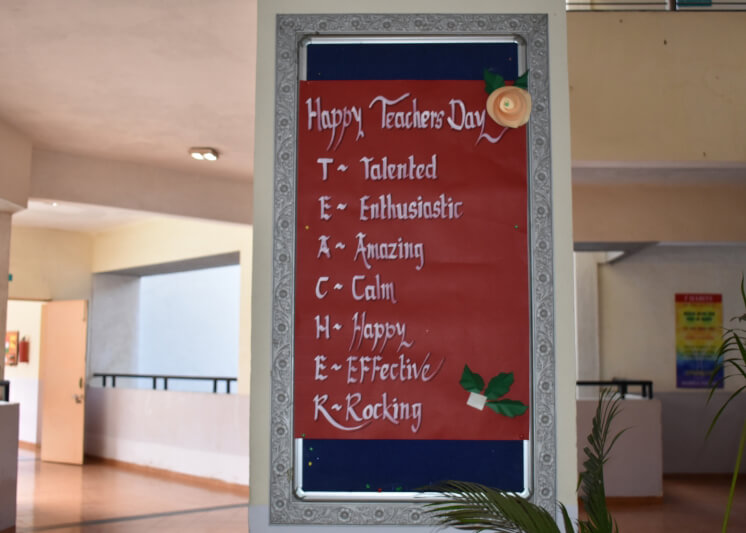 Happy Teachers Day
T ~ Talented
E ~ Enthusiastic
A ~ Amazing
C ~ Calm
H ~ Happy
E ~ Effective
R ~ Rocking
7 HABITS